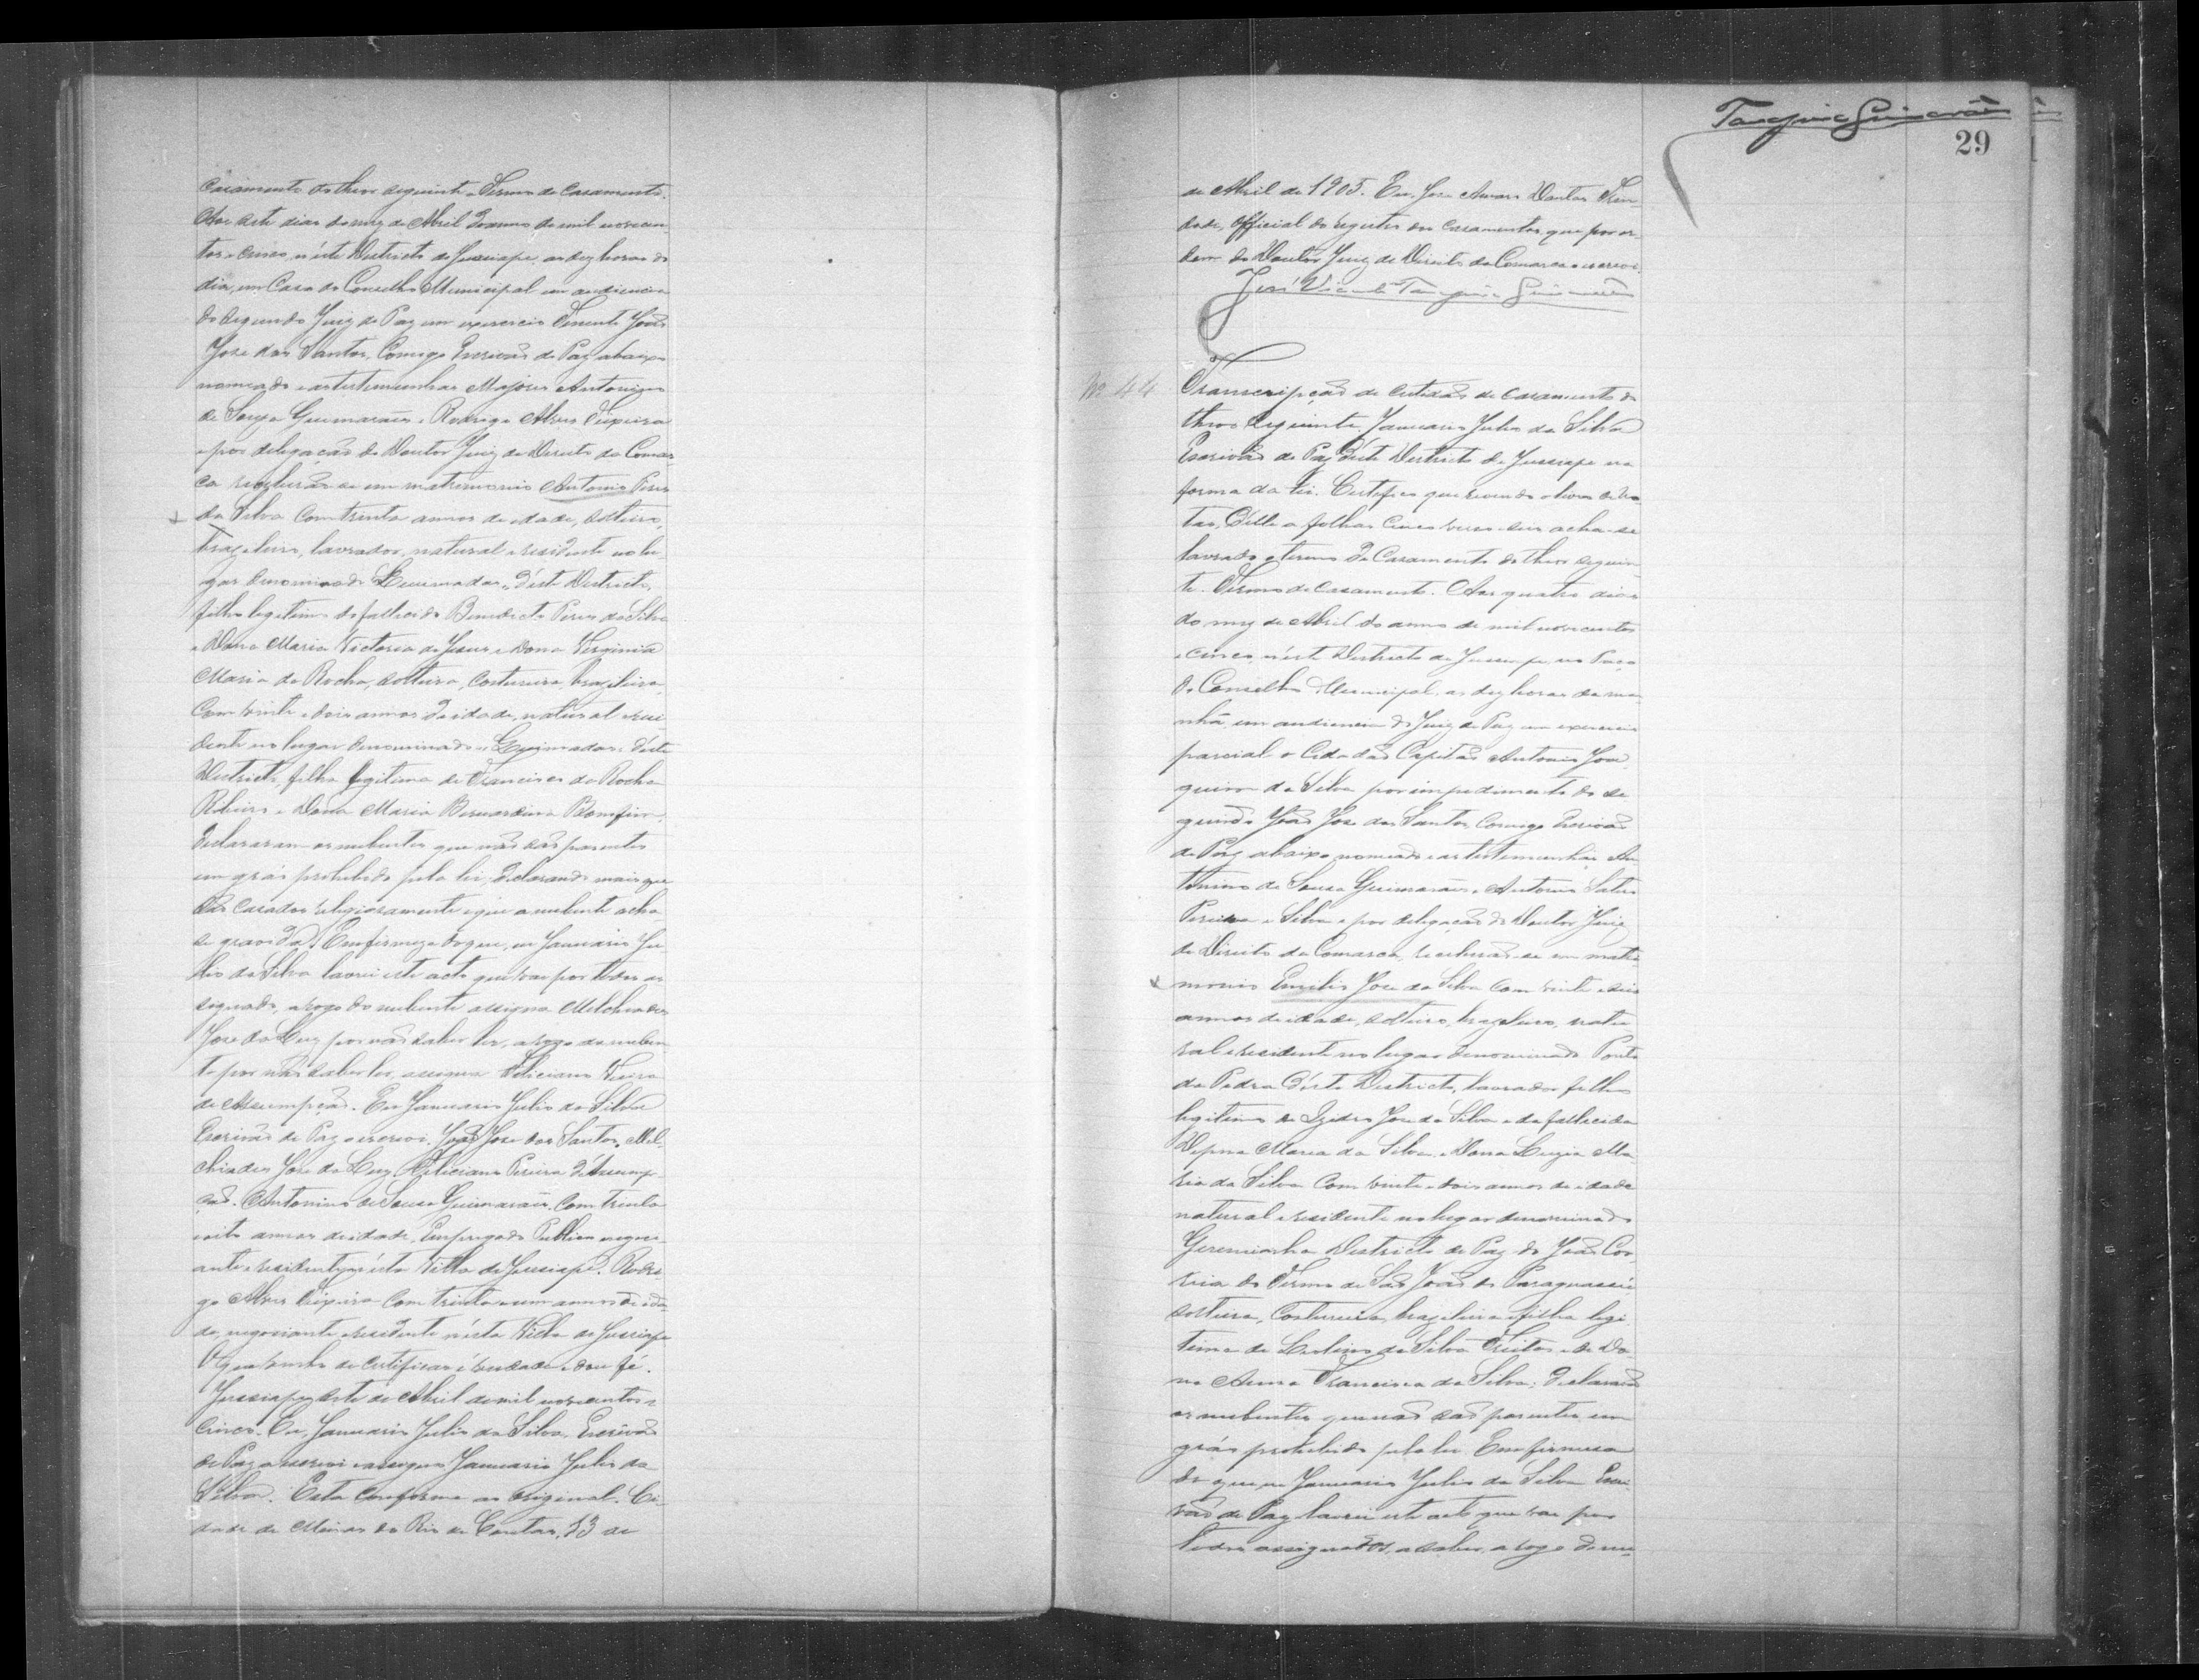 Casamento do theor seguinte. Termo de Casamento.
Aos sete dias do mez de Abril do anno de mil novecen-
tos e cinco, n'éste Districto de Jussiape, as dez horas do
dia, em Casa do Conselho Municipal em audiencia
do segundo Juiz de Paz em exercicio Tenente João
José dos Santos, Comigo Escrivão de Paz abaixo
nomeado e as testemunhas Majores Antonino
de Souza Guimarães e Rodrigo Alves Teixeira
e por delegação do Doutor Juiz de Direito da Comar-
ca receberão-se em matrimonio Antonio Pires
da Silva com trinta annos de idade, solteiro,
brazileiro, lavrador, natural e residente no lu-
gar denominado Queimadas, d'éste Districto,
filho legitimo do fallecido Benedicto Pires da Silva
e Dona Maria Victoria de Jesus e Dona Virginia
Maria da Rocha, solteira, costureira, brazileira,
com vinte e dois annos de idade, natural e resi-
dente no lugar denominado Queimadas d'éste
Districto, filha legitima de Francisco da Rocha
Ribeiro e Dona Maria Bernardina Bomfim.
Declararam os nubentes que não são parentes
em gráo prohibido pela lei, declarando mais que
são casados religiosamente e que a nubente acha-
se gravida. Em firmeza do que, eu Januario Ju-
lio da Silva lavrei este acto que vae por todos as-
signado, a rogo do nubente assigna Melchiades
José da Luz por não saber ler, a rogo da nuben-
te por não saber ler, assigna Feliciano Pereira
de Assumpção. Eu Januario Julio da Silva
Escrivão de Paz o escrevi. João José dos Santos. Mel-
chiades José da Luz. Feliciano Pereira d'Assump-
ção. Antonino de Souza Guimarães, com trinta
e oito annos de idade, Empregado Publico negoci-
ante e residente n'ésta Villa de Jussiape. Rodri-
go Alves Teixeira com trinta e um annos de ida-
de, negociante e residente n'ésta Villa de Jussiape
O que venho de certificar é verdade e dou fé.
Jussiape, sete de Abril de mil novecentos e
cinco. Eu, Januario Julio da Silva, Escrivão
de Paz o escrevi e assigno Januario Julio da
Silva. Esta conforme ao original. Ci-
dade de Minas do Rio de Contas, 13 de
Tanajura Guimarães
29
de Abril de 1905. Eu, José Dantas Trin-
dade, Official do registro dos casamentos que por or-
dem do Doutor Juiz de Direito da Comarca o escrevi.
José Vicente Tanajura Guimarães
Nº 44
Transcripção de certidão de casamento do
theor seguinte. Januario Julio da Silva
Escrivão de Paz d'éste Districto de Jussiape na
forma da lei. Certifico que revendo o livro de no-
tas, d'elle a folhas cinco verso seis acha-se
lavrado o termo de Casamento do theor seguin-
te. Termo de casamento. Aos quatro dias
do mez de Abril do anno de mil novecentos
e cinco, n'éste Districto de Jussiape, no Paço
do Conselho Municipal, as dez horas da ma-
nhã em audiencia do Juiz de Paz em exercicio
parcial o Cidadão Capitão Antonio Joa-
quim da Silva por impedimento do se-
gundo João José dos Santos, Comigo Escrivão
de Paz abaixo nomeado e as testemunhas An-
tonino de Souza Guimarães e Antonio
Pereira e Silva e por delegação do Doutor Juiz
de Direito da Comarca, receberão-se em matri-
monio Emilio José da Silva com vinte e seis
annos de idade, solteiro, brazileiro, natu-
ral e residente no lugar denominado Ponte
da Pedra d'éste Districto, lavrador filho
legitimo de Izidro José da Silva e da fallecida
Maria da Silva e Dona Luzia Ma-
ria da Silva com vinte e dois annos de idade
natural e residente no lugar denominado
Districto de Paz de João Cor-
reia do Termo de São João do Paraguassú
solteira, Costureira, brazileira e filha legi-
tima de da Silva Freitas e de Do-
na Anna Francisca da Silva; declararão
os nubentes que não são parentes em
gráo prohibido pela lei. Em firmeza
do que eu Januario Julio da Silva Escri-
vão de Paz lavrei este acto que vae por
todos assignados, a saber, a rogo do nu-